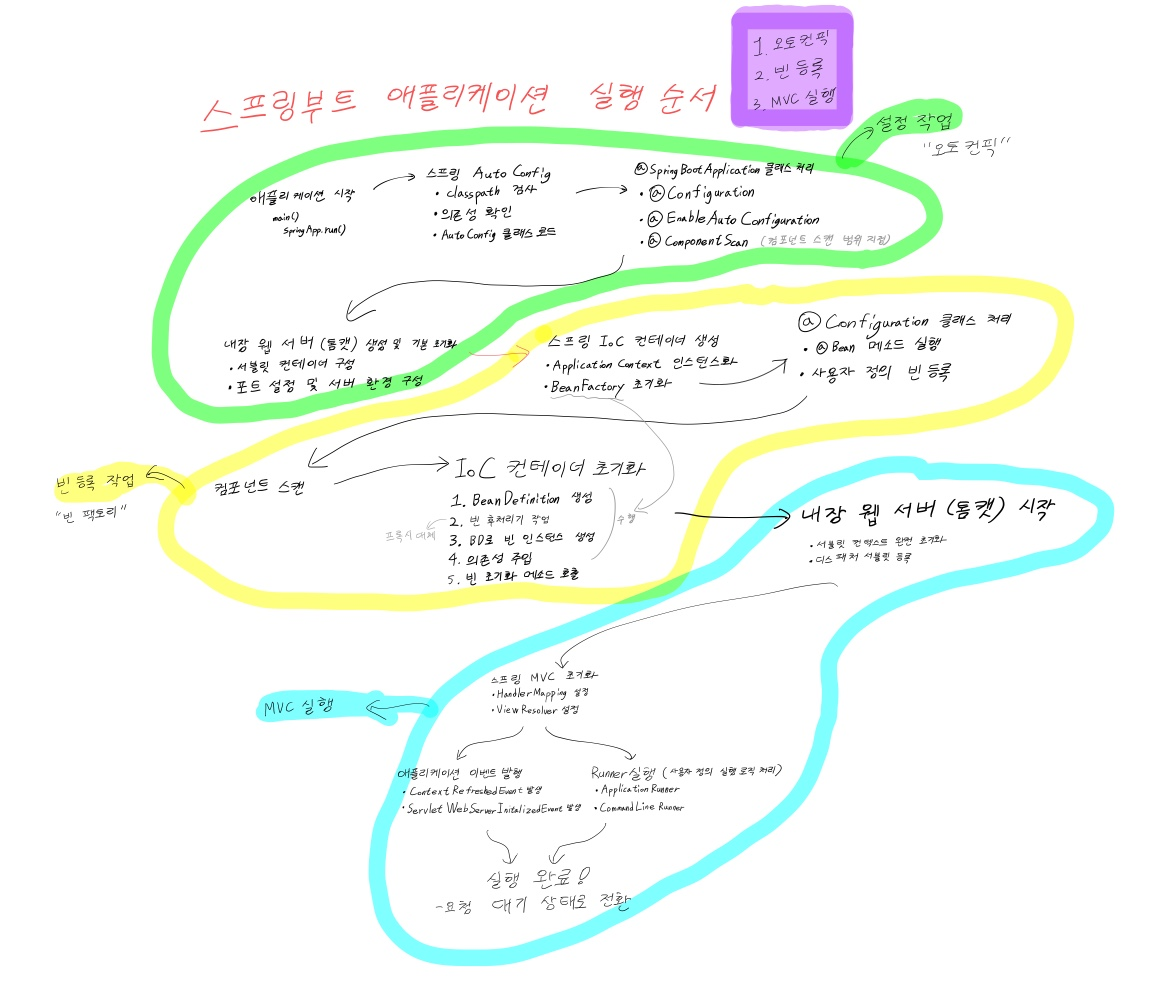 스프링부트 애플리케이션 실행 순서
1. 오토컨픽
2. 빈 등록
3. MVC 실행
설정 작업
"오토컨픽"
애플리케이션 시작
main()
springApp.run()
스프링 Auto Config
• classpath 검사
• 의존성 확인
• AutoConfig 클래스 로드
@SpringBootApplication 클래스 처리
• @Configuration
• @EnableAutoConfiguration
• @ComponentScan (컴포넌트 스캔 범위 지정)
내장 웹 서버 (톰캣) 생성 및 기본 초기화
• 서블릿 컨테이너 구성
• 포트 설정 및 서버 환경 구성
스프링 IoC 컨테이너 생성
• Application Context 인스턴스화
• BeanFactory 초기화
@Configuration 클래스 처리
• @Bean 메소드 실행
• 사용자 정의 빈 등록
빈 등록 작업
"빈 팩토리"
컴포넌트 스캔
IoC 컨테이너 초기화
1. BeanDefinition 생성
2. 빈 후처리기 작업
프록시 대체
3. BD로 빈 인스턴스 생성
4. 의존성 주입
5. 빈 초기화 메소드 호출
수행
내장 웹 서버 (톰캣) 시작
• 서블릿 컨텍스트 완전 초기화
• 디스패처 서블릿 등록
MVC 실행
스프링 MVC 초기화
• HandlerMapping 설정
• ViewResolver 설정
애플리케이션 이벤트 발행
• ContextRefreshedEvent 발생
• Servlet WebServerInitalizedEvent 발생
Runner 실행 (사용자 정의 실행 로직 처리)
• Application Runner
• CommandLine Runner
실행 완료!
- 요청 대기 상태로 전환